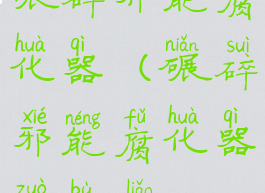 碎邪能腐
huà qì niǎn suì
化器（碾碎
xié néng fǔ huà qì
邪能腐化器
zuò bù liǎo